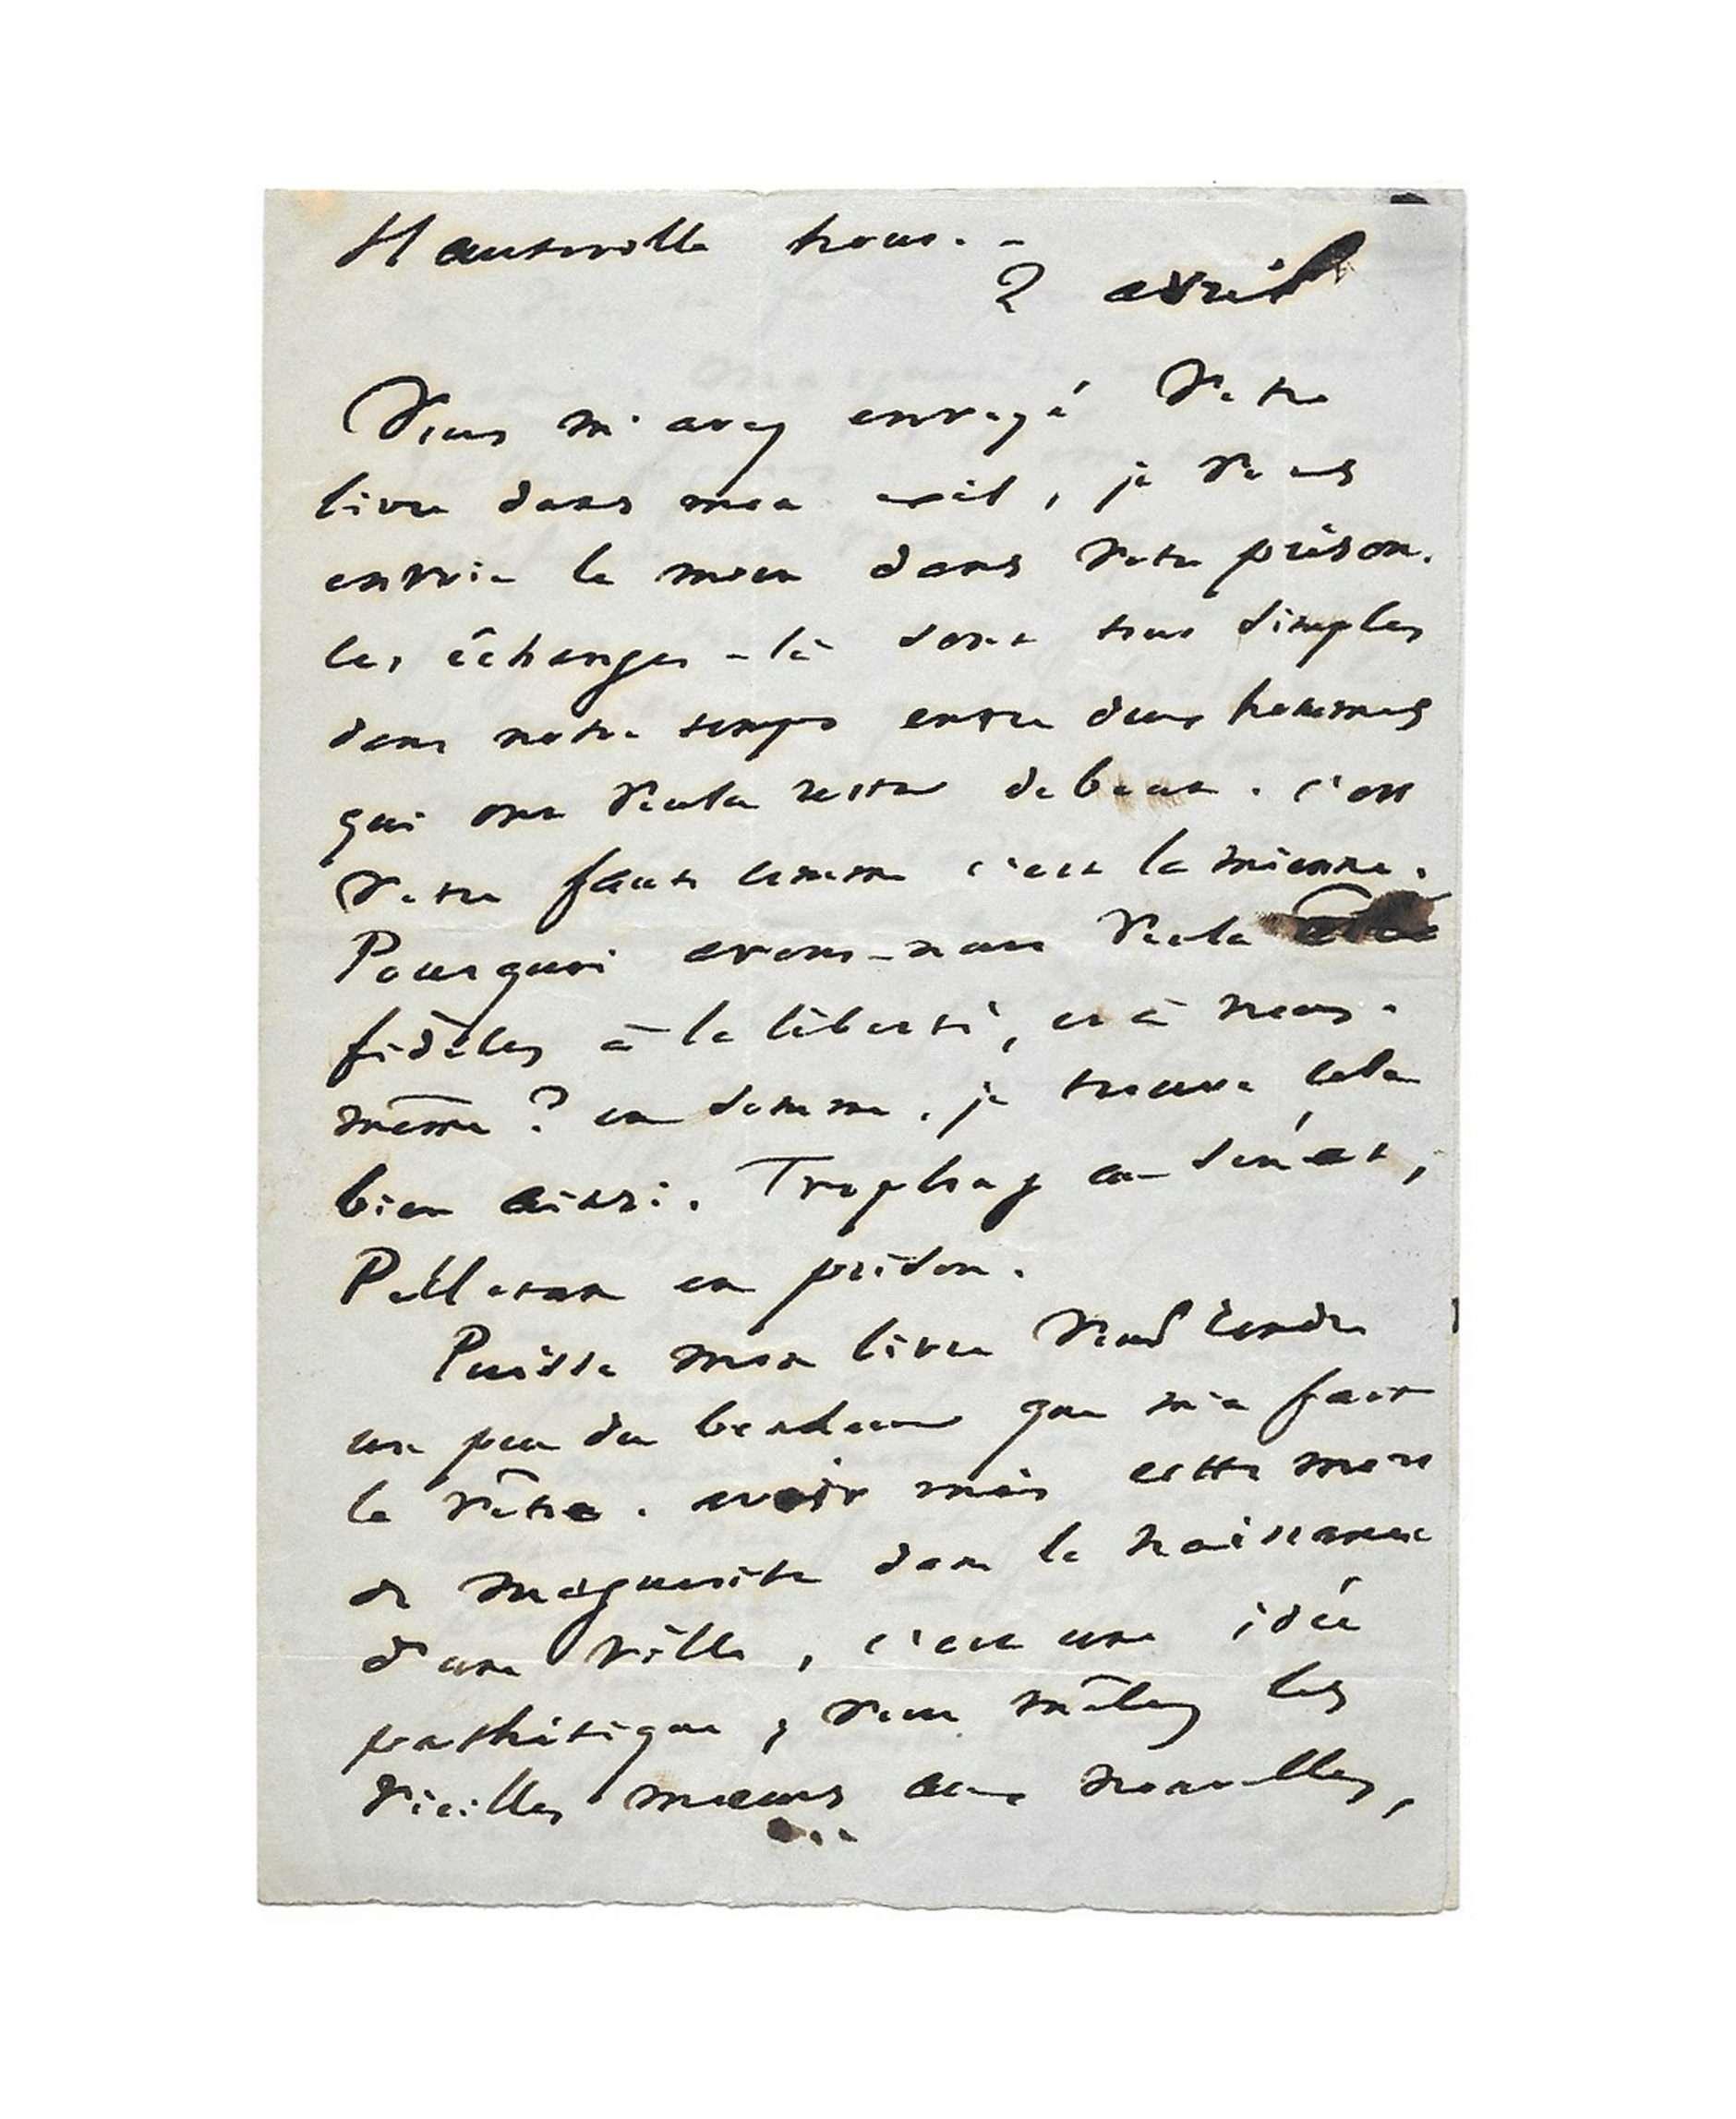 Hauteville house. -
2 avril
Vous m'avez envoyé votre
livre dans mon exil, je vous
envoie le mien dans votre prison.
Ces échanges-là sont tous simples
dans notre temps entre deux hommes
qui ont voulu rester debout. C'est
votre faute comme c'est la mienne.
Pourquoi avons-nous voulu être
fidèles à la liberté, et à nous-
même ? en somme, je trouve cela
bien ainsi. Troplong au sénat,
Pelletan en prison.
Puisse mon livre vous rendre
un peu du bonheur que m'a fait
le vôtre. avoir mis cette mort
de marguerite dans la naissance
d'une ville, c'est une idée
pathétique ; vous mêlez les
vieilles mœurs aux nouvelles,